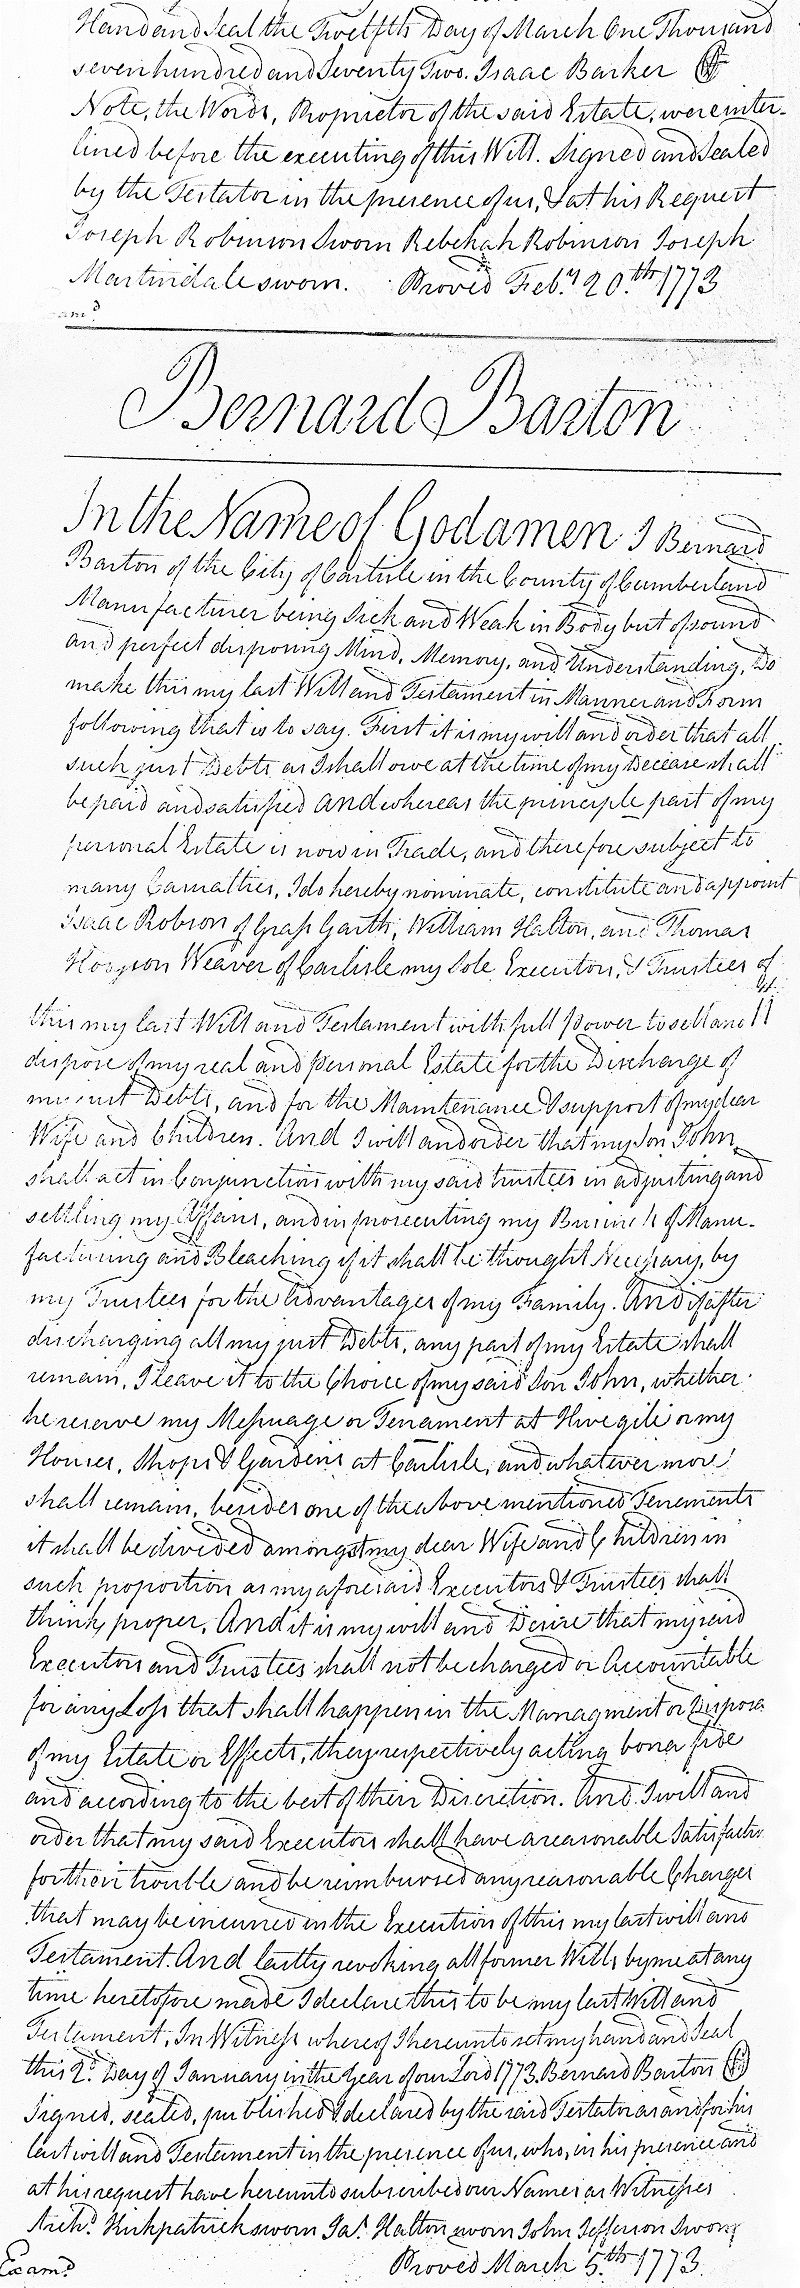 Hand and Seal the Twelfth Day of March One Thousand
seven hundred and Seventy Two. Isaac Barker
Note, the Words, Proprietor of the said Estate, were inter-
lined before the executing of this Will. Signed and Sealed
by the Testator in the presence of us, & at his Request
Joseph Robinson Sworn Rebekah Robinson Joseph
Martindale sworn. Proved Feb.y 20.th 1773
Bernard Barton
In the Name of God amen I Bernard
Barton of the City of Carlisle in the County of Cumberland
Manufacturer being Sick and Weak in Body but of sound
and perfect disposing Mind, Memory, and Understanding, Do
make this my last Will and Testament in Manner and Form
following that is to say. First it is my will and order that all
such just Debts as I shall owe at the time of my Decease shall
be paid and satisfied And whereas the principle part of my
personal Estate is now in Trade, and therefore subject to
many Casualties, I do hereby nominate, constitute and appoint
Isaac Robson of Grass Garth, William Halton, and Thomas
Hodgson Weaver of Carlisle my Sole Executors, & Trustees of
this my last Will and Testament with full Power to sell and
dispose of my real and personal Estate for the Discharge of
my just Debts, and for the Maintenance & support of my dear
Wife and Children. And I will and order that my Son John
shall act in Conjunction with my said trustees in adjusting and
settling my Affairs, and in prosecuting my Business of Manu-
facturing and Bleaching if it shall be thought Necessary, by
my Trustees for the Advantages of my Family. And if after
discharging all my just Debts, any part of my Estate shall
remain, I leave it to the Choice of my said Son John, whether
he reserve my Messuage or Tenament at Ivegile or my
Houses, Shops & Gardens at Carlisle, and whatever more
shall remain, besides one of the above mentioned Tenements
it shall be divided amongst my dear Wife and Children in
such proportion as my aforesaid Executors & Trustees shall
think proper. And it is my will and Desire that my said
Executors and Trustees shall not be charged or Accountable
for any Loss that shall happen in the Managment or Disposa
of my Estate or Effects, they respectively acting bona fide
and according to the best of their Discretion. And I will and
order that my said Executors shall have a reasonable Satisfactio
for their trouble and be reimbursed any reasonable Charges
that may be incurred in the Execution of this my last will and
Testament. And lastly revoking all former Wills by me at any
time heretofore made I declare this to be my last Will and
Testament, In Witness whereof I hereunto set my hand and Seal
this 2.d Day of January in the Year of our Lord 1773. Bernard Barton
Signed, sealed, published & declared by the said Testator as and for his
last will and Testament in the presence of us, who, in his presence and
at his request have hereunto subscribed our Names as Witnesses
Arch.d Kirkpatrick sworn Ja.s Halton sworn John Jefferson Sworn
Exam.d Proved March 5.th 1773.